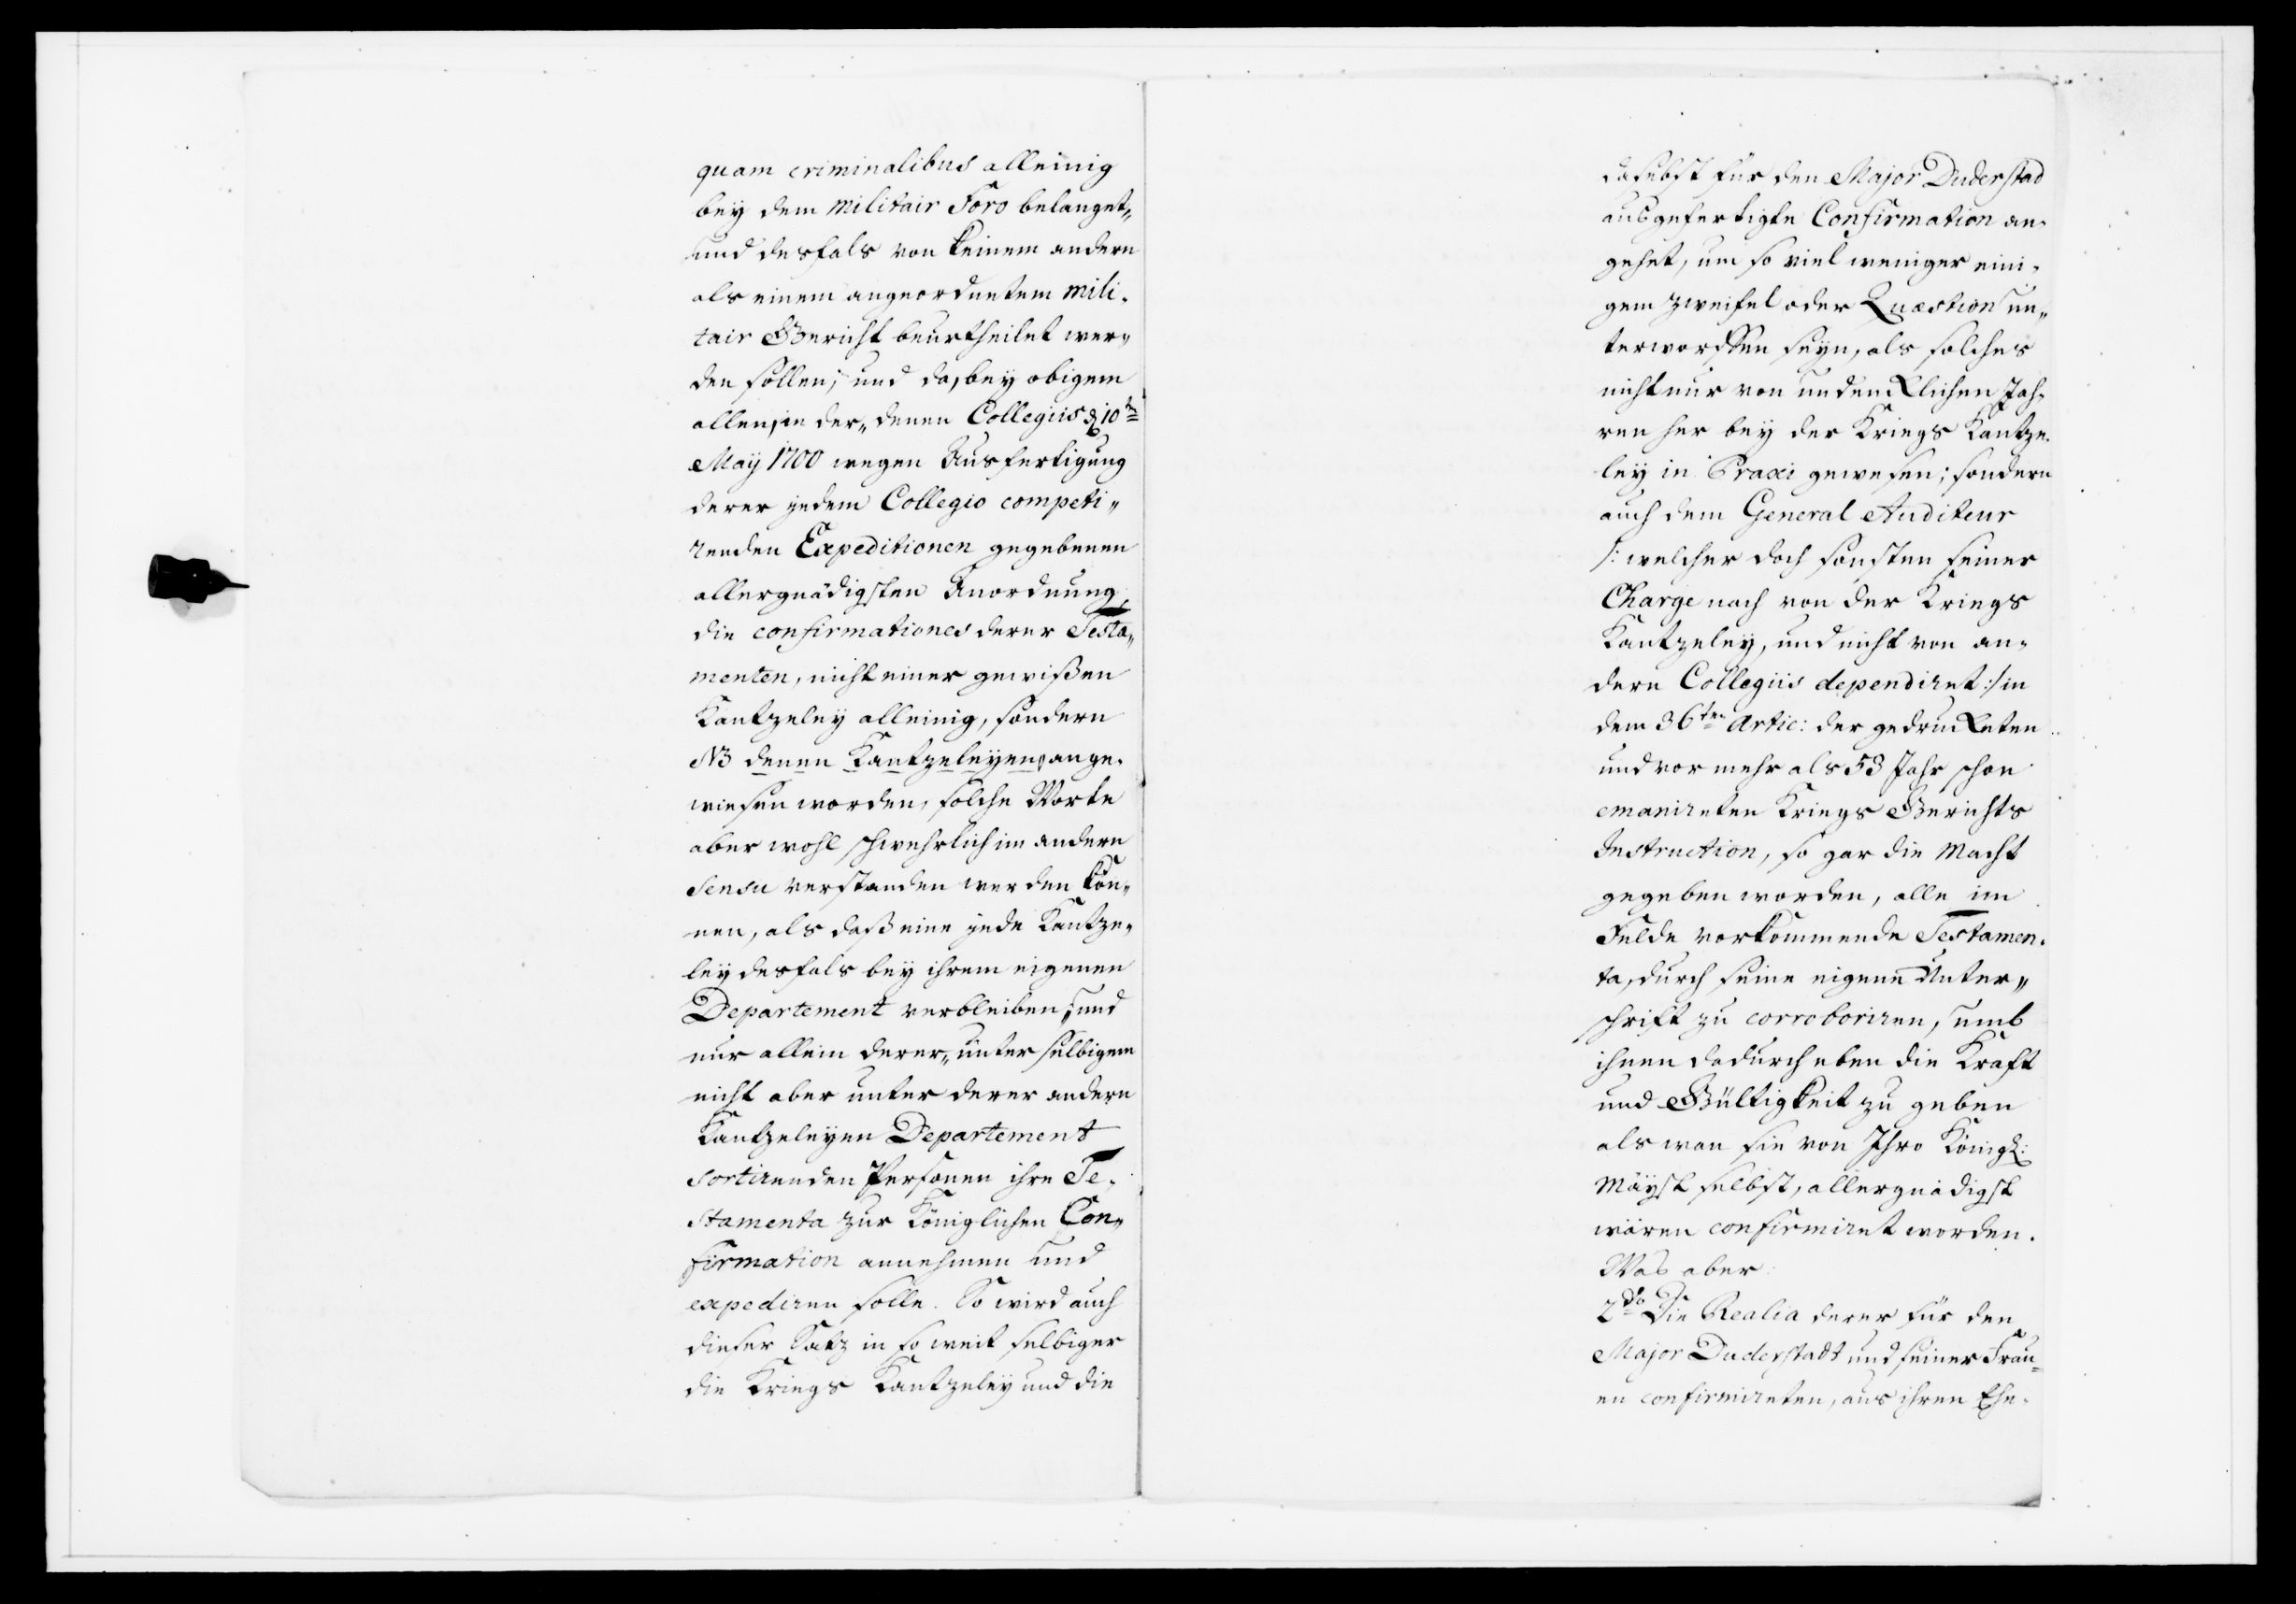 quam criminalibus alleinig
bey dem militair Foro belanget,
und desfals von keinem andern
als einem angeordnetem mili-
tair Gericht beurtheilet wer„
den sollen; und da, bey obigem
allen, in der, denen Collegiis d 10ten
Maij 1700 wegen Ausfertigung
derer jedem Collegio competi„
renden Expeditionen gegebenen
allergnädigsten Anordnung,
die confirmationes derer Testa„
menten, nicht einer gewißen
Kantzeley alleinig, sondern
NB denen Kantzeleyen, ange-
wiesen worden, solche Worte
aber wohl schwehrlich im andern
Sensu verstanden werden kön„
nen, als daß eine jede Kantze„
ley desfals bey ihrem eigenen
Departement verbleiben, und
nur allein derer, unter selbigem
nicht aber unter derer andern
Kantzeleyen Departement
sortirenden Personen ihre Te-
stamenta zur Königlichen Con„
firmation annehmen und
expediren solle. So wird auch
dieser Satz in so weit selbiger
die Kriegs Kantzeley und die
daselbst für den Major Duderstad
ausgefertigte Confirmation an-
gehet, um so viel weniger eini-
gem Zweifel oder Quæstion un„
terworffen seyn, als solches
nicht nur von undencklichen Jah-
ren her bey der Kriegs Kantze-
ley in Praxi gewesen; sondern
auch dem General Auditeur
/: welcher doch sonsten seiner
Charge nach von der Kriegs
Kantzeley, und nicht von an-
dern Collegiis dependiret :/ in
dem 36ten Artic: der gedruckten
und vor mehr als 53 Jahr schon
emanirten Kriegs Gerichts
Instruction, so gar die Macht
gegeben worden, alle im
Felde vorkommende Testamen-
ta, durch seine eigene Unter„
schrifft zu corroboriren, umb
ihnen dadurch eben die Krafft
und Gültigkeit zu geben
als wan sie von Ihro Königl:
Mayst selbst, allergnädigst
wären confirmiret worden.
Was aber
2do Die Realia derer für den
Major Duderstadt und seiner Frau-
en confirmirten, aus ihren Ehe-